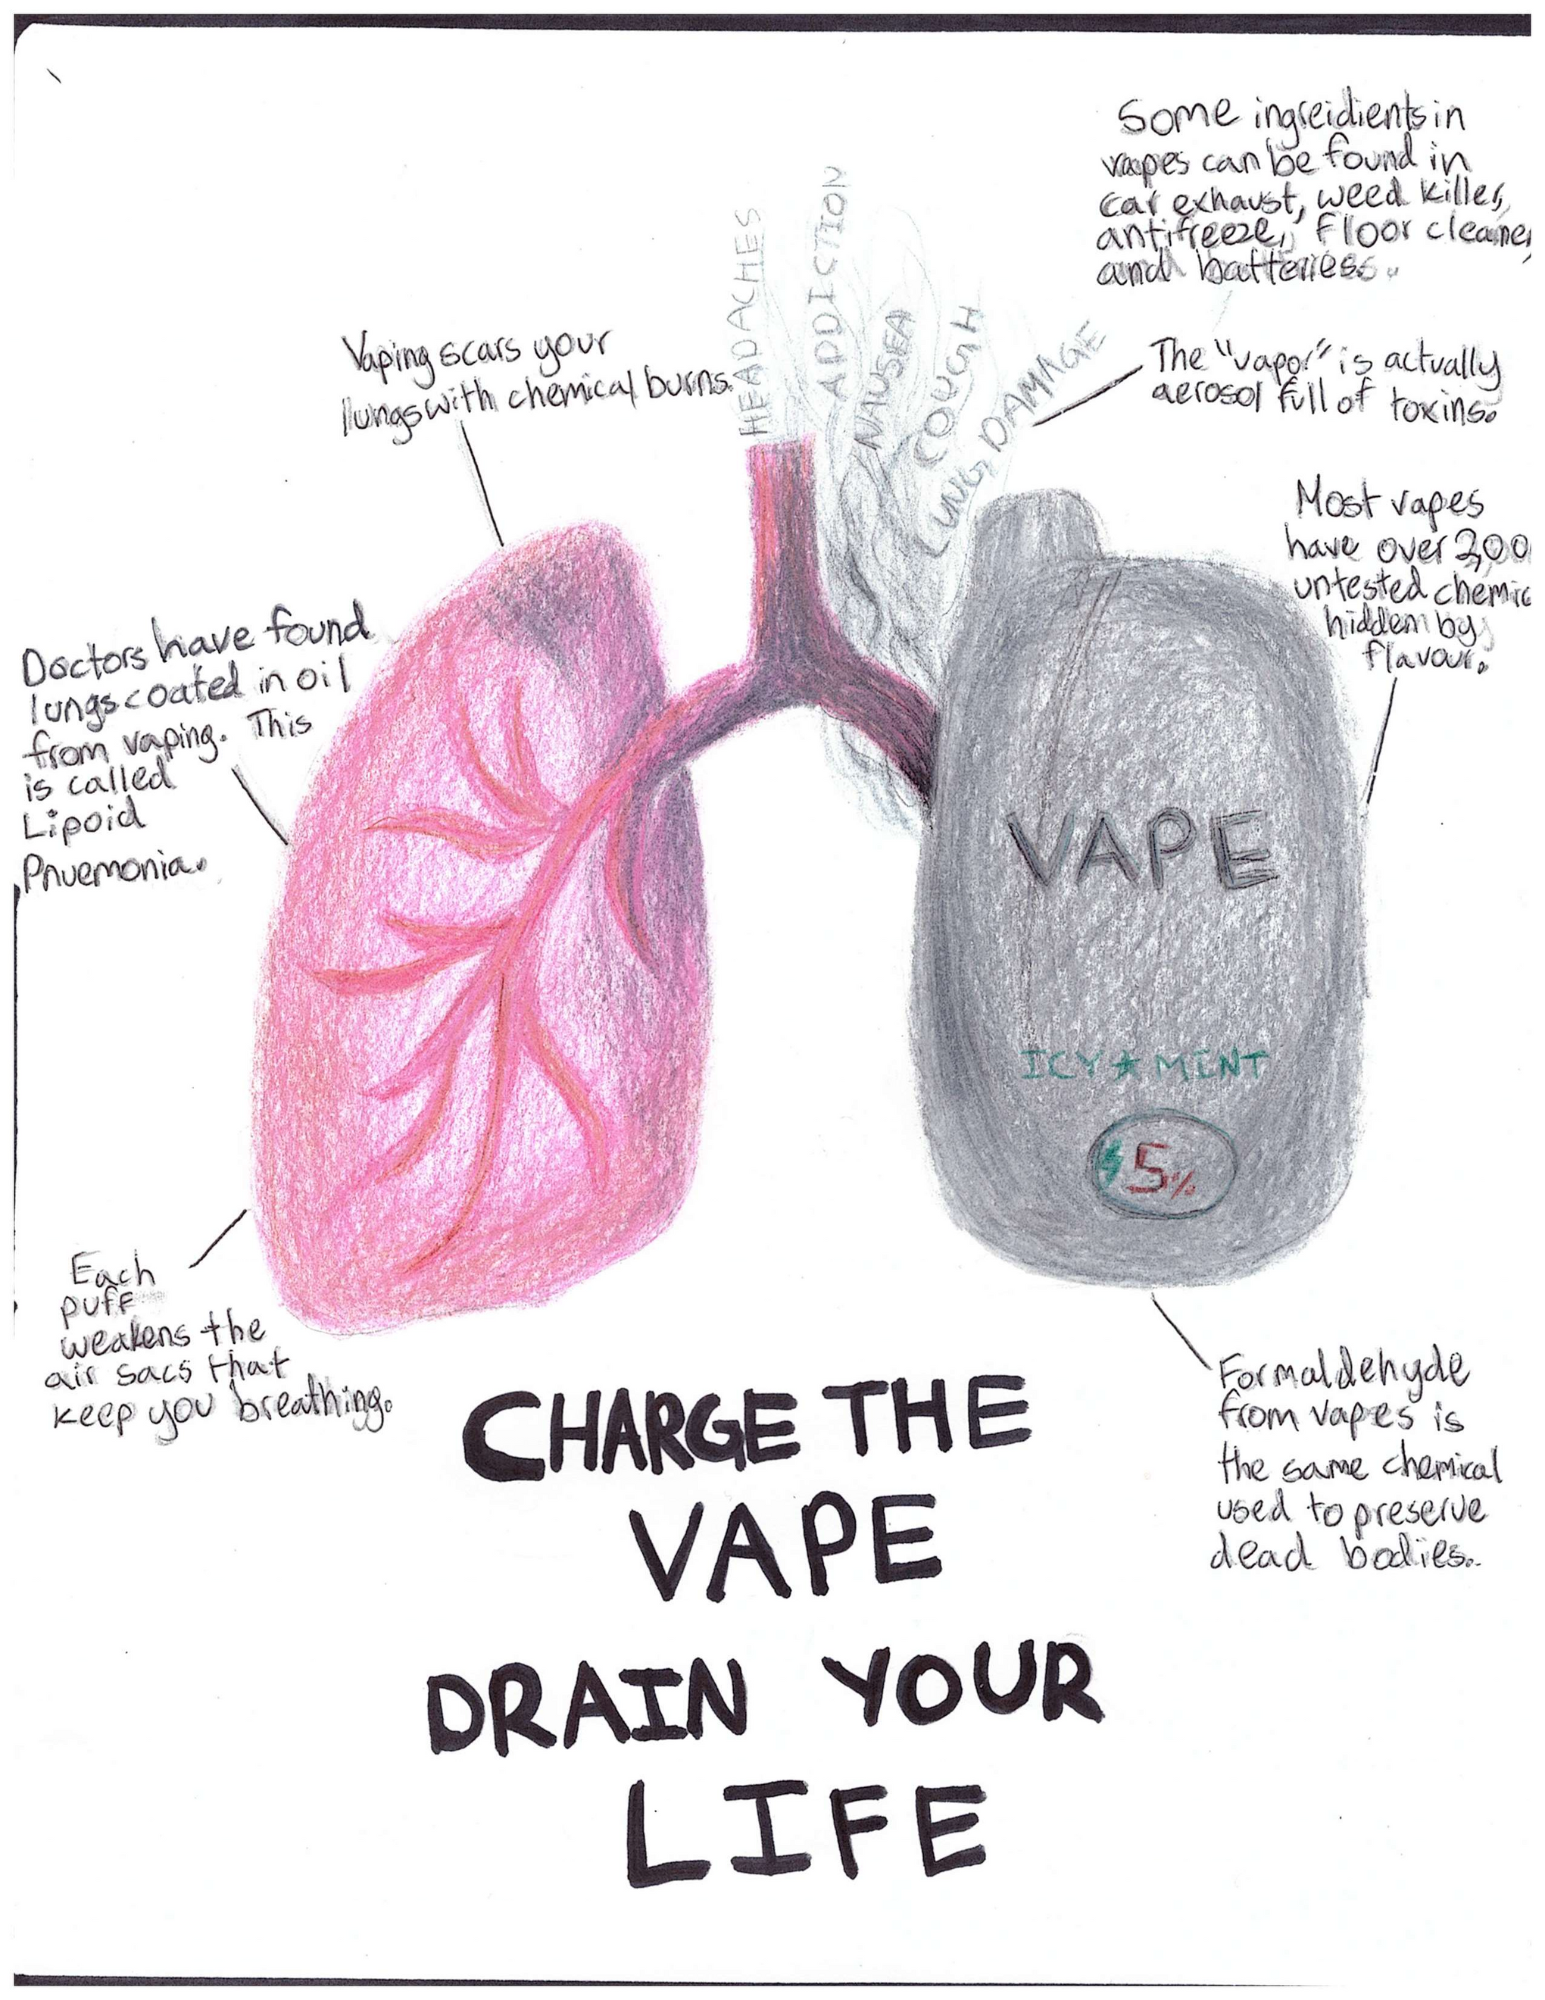 Some ingreidients in
vapes can be found in
car exhaust, weed killer,
antifreeze, Floor cleaner,
and batteries.
HEADACHES
ADDICTION
NAUSEA
COUGH
LUNG DAMAGE
Vaping scars your
lungs with chemical burns.
The "vapor" is actually
aerosol full of toxins.
Most vapes
have over
untested
hidden by
flavour.
Doctors have found
lungs coated in oil
from vaping. This
is called
Lipoid
Pnuemonia.
VAPE
ICY MINT
5%
Each
puff
weakens the
air sacs that
keep you breathing.
Formaldehyde
from vapes is
the same chemical
used to preserve
dead bodies.
CHARGE THE
VAPE
DRAIN YOUR
LIFE